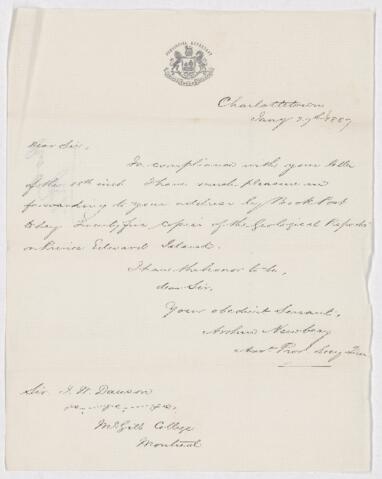 Charlottetown
Jany 29th 1889
Dear Sir,
In compliance with your letter
of the 15th inst I have much pleasure in
forwarding to your address by Book Post
today Twenty five copies of the Geological Report
on Prince Edward Island.
I have the honor to be,
dear Sir,
Your obedient Servant,
Arthur Newbery
Asst Prov Secy Treas
Sir J. W. Dawson
McGill College
Montreal